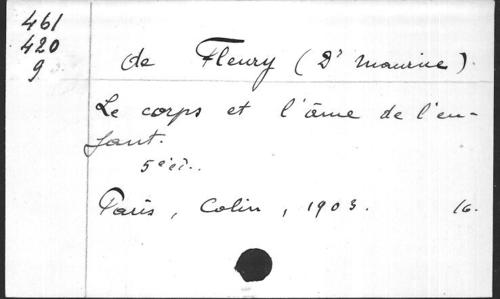 461
420
9
de Fleury (Dr Maurice).
Le corps et l'âme de l'en-
fant.
5e éd..
Paris, Colin, 1903. 16.